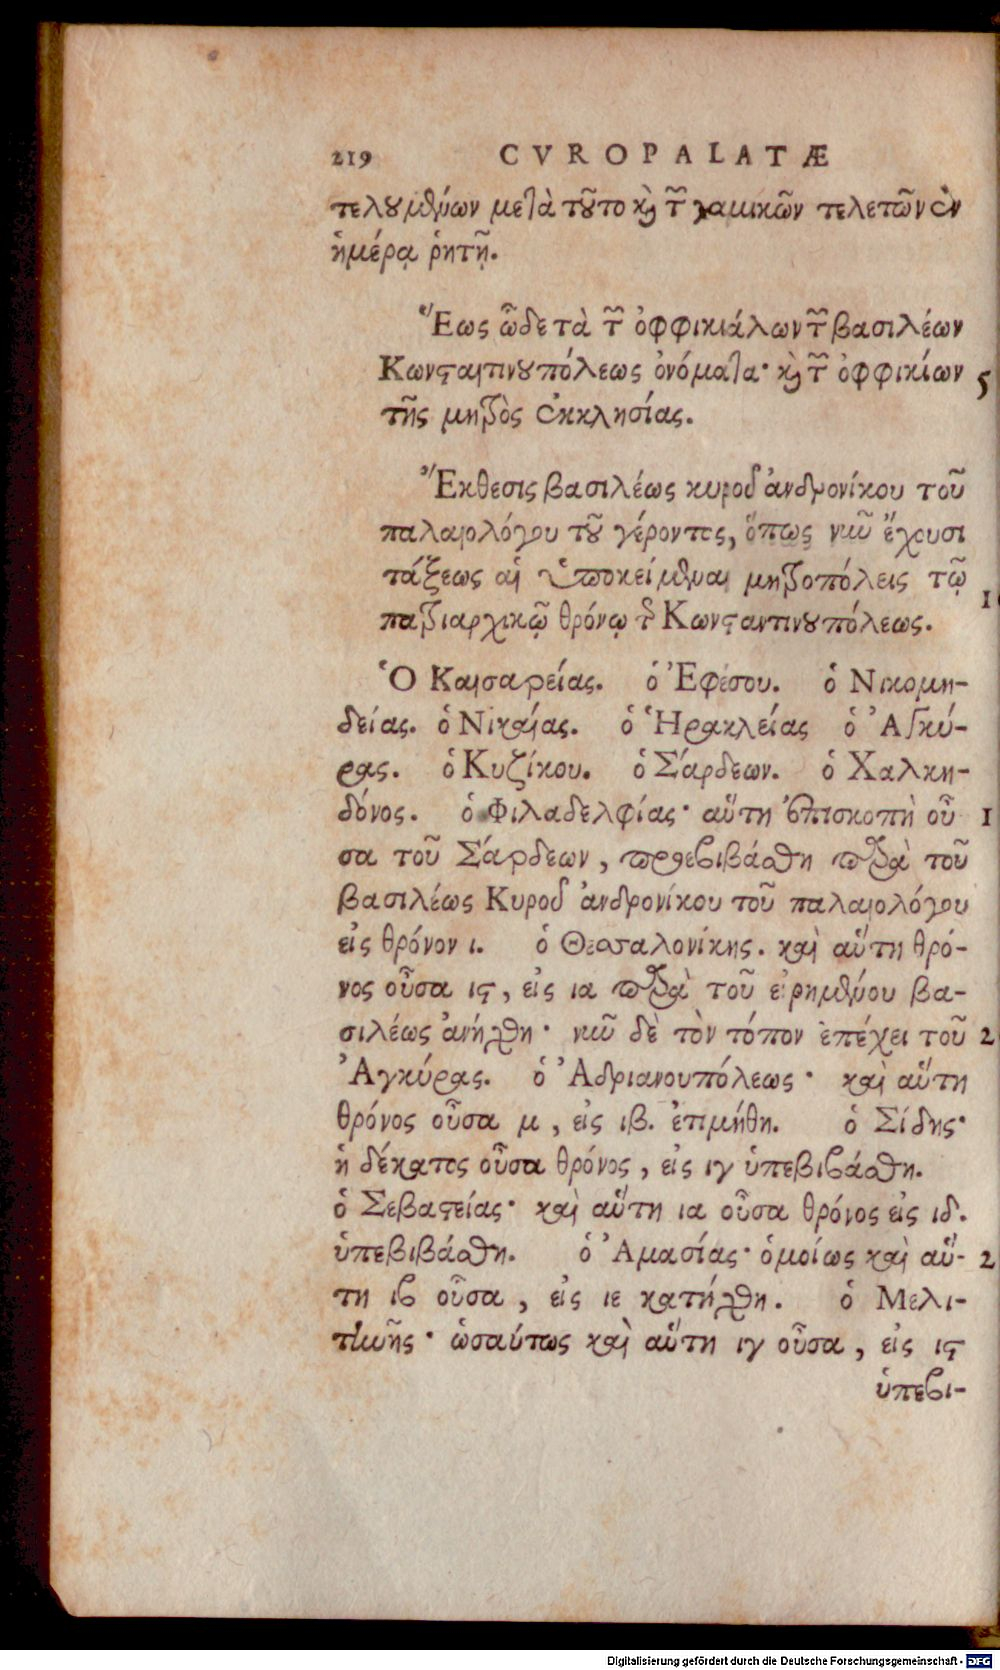 219 CVROPALATÆ
τελουμένων μετὰ τοῦτο καὶ τῶν γαμικῶν τελετῶν ἐν
ἡμέρᾳ ῥητῇ.
Ἕως ὧδε τὰ τῶν ὀφφικιάλων τῶν βασιλέων
Κωνσταντινουπόλεως ὀνόματα· καὶ τῶν ὀφφικίων 5
τῆς μητρὸς ἐκκλησίας.
Ἔκθεσις βασιλέως κυροῦ ἀνδρονίκου τοῦ
παλαιολόγου τοῦ γέροντος, ὅπως νῦν ἔχουσι
τάξεως αἱ ὑποκείμεναι μητροπόλεις τῷ
πατριαρχικῷ θρόνῳ τῆς Κωνσταντινουπόλεως. 1
Ὁ Καισαρείας. ὁ Ἐφέσου. ὁ Νικομη-
δείας. ὁ Νικαίας. ὁ Ἡρακλείας ὁ Ἀγκύ-
ρας. ὁ Κυζίκου. ὁ Σάρδεων. ὁ Χαλκη-
δόνος. ὁ Φιλαδελφίας· αὕτη ἐπισκοπὴ οὖ 1
σα τοῦ Σάρδεων, προεβιβάσθη παρὰ τοῦ
βασιλέως Κυροῦ ἀνδρονίκου τοῦ παλαιολόγου
εἰς θρόνον ι. ὁ Θεσσαλονίκης. καὶ αὕτη θρό-
νος οὖσα ις, εἰς ια παρὰ τοῦ εἰρημένου βα-
σιλέως ἀνήχθη· νῦν δὲ τὸν τόπον ἐπέχει τοῦ 2
Ἀγκύρας. ὁ Ἀδριανουπόλεως· καὶ αὕτη
θρόνος οὖσα μ, εἰς ιβ. ἐτιμήθη. ὁ Σίδης·
ἡ δέκατος οὖσα θρόνος, εἰς ιγ ὑπεβιβάσθη.
ὁ Σεβαστείας· καὶ αὕτη ια οὖσα θρόνος εἰς ιδ.
ὑπεβιβάσθη. ὁ Ἀμασίας· ὁμοίως καὶ αὕ- 2
τη ιβ οὖσα, εἰς ιε κατήχθη. ὁ Μελι-
τηνῆς· ὡσαύτως καὶ αὕτη ιγ οὖσα, εἰς ις
ὑπεβι-
Digitalisierung gefördert durch die Deutsche Forschungsgemeinschaft - DFG